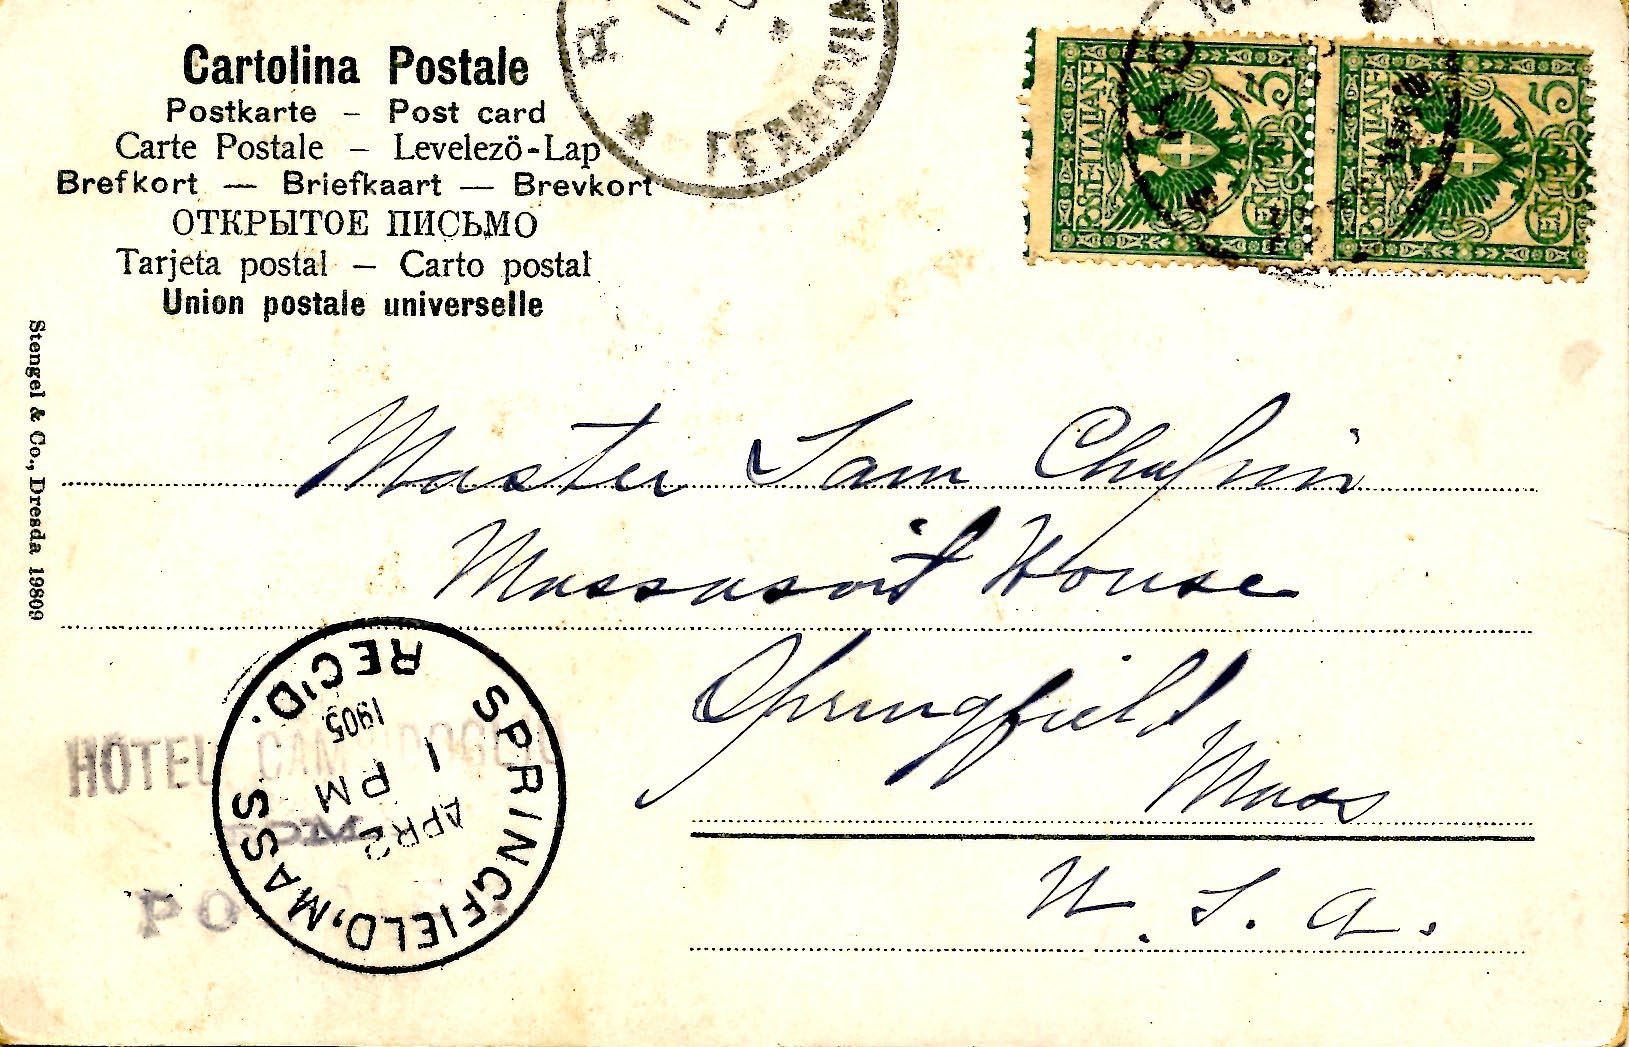 Cartolina Postale
Postkarte – Post card
Carte Postale – Levelezö-Lap
Brefkort — Briefkaart — Brevkort
ОТКРЫТОЕ ПИСЬМО
Tarjeta postal – Carto postal
Union postale universelle
FERROVIA
POSTE ITALIANE
5
CEN
POSTE ITALIANE
5
CEN
Stengel & Co., Dresda 19809
Master Sam Chapin
Massasoit House
Springfield
Mass
U. S. A.
HOTEL CAMPIDOGLIO
SPRINGFIELD, MASS
REC'D.
APR 2
1 PM
1905